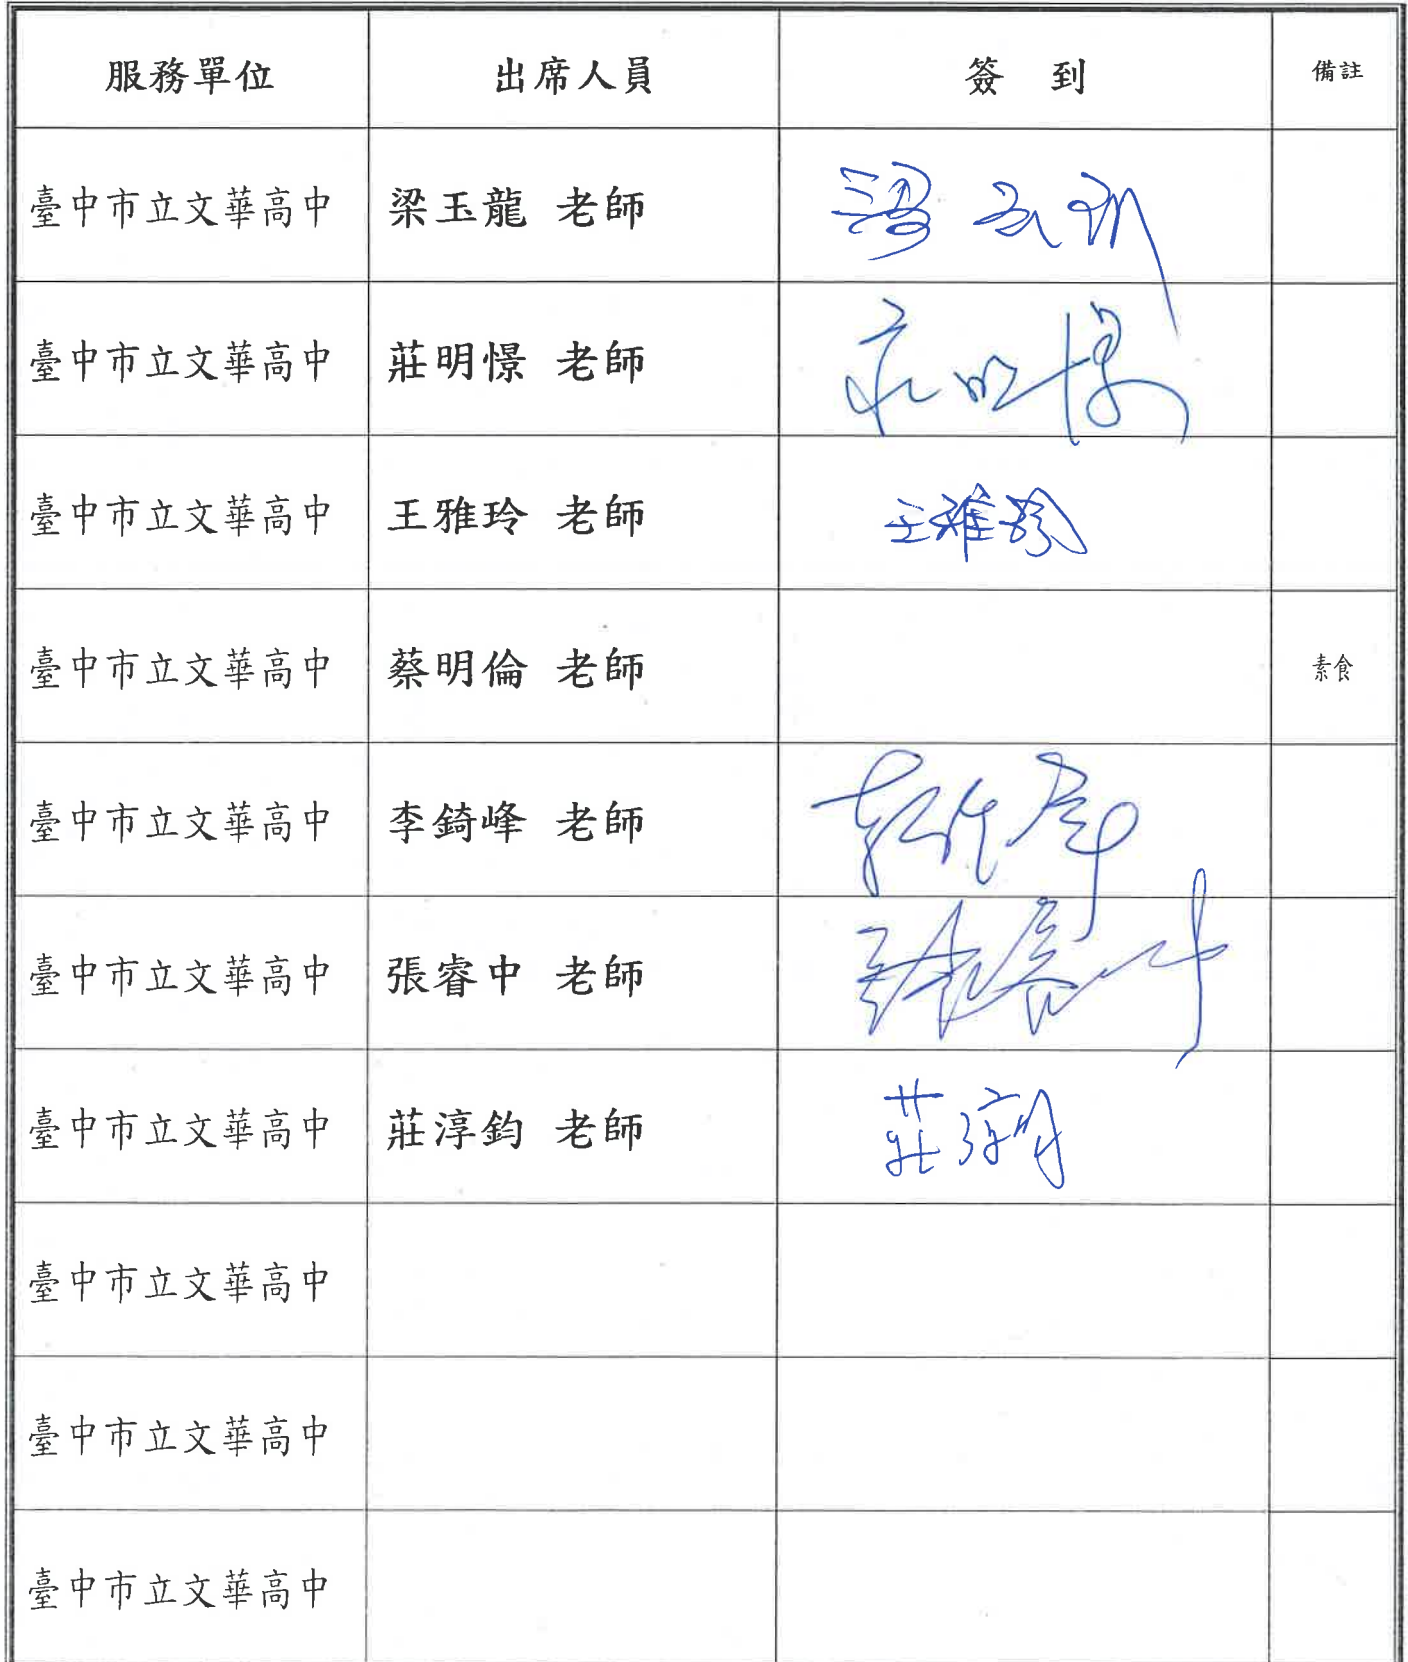 服務單位 出席人員 簽到 備註
臺中市立文華高中 梁玉龍 老師
臺中市立文華高中 莊明憬 老師
臺中市立文華高中 王雅玲 老師 王雅玲
臺中市立文華高中 蔡明倫 老師 素食
臺中市立文華高中 李錡峰 老師
臺中市立文華高中 張睿中 老師
臺中市立文華高中 莊淳鈞 老師
臺中市立文華高中
臺中市立文華高中
臺中市立文華高中